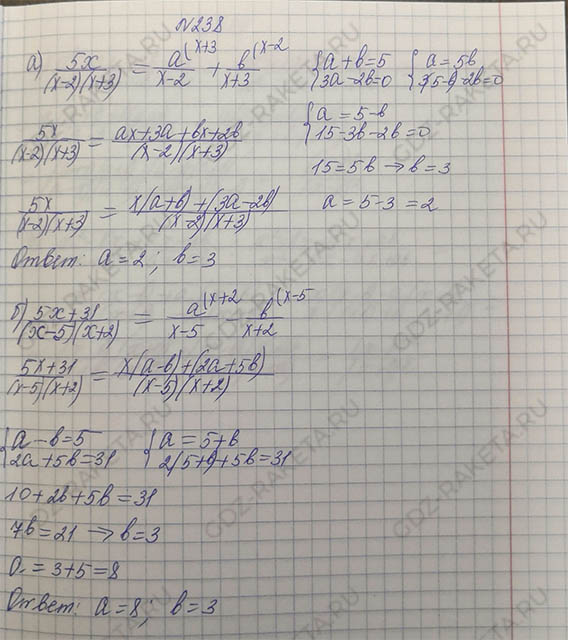 N238
а) 5x/(x-2)(x+3) = a^(x+3/x-2 + b^(x-2/x+3
{a+b=5 3a-2b=0 {a=5b 3(5-b)-2b=0
5x/(x-2)(x+3) = ax+3a+bx+2b/(x-2)(x+3)
{a=5-b 15-3b-2b=0
15=5b → b=3
5x/(x-2)(x+3) = x(a+b)+(3a-2b)/(x-2)(x+3)
a=5-3=2
Ответ: a=2; b=3
б) 5x+31/(x-5)(x+2) = a^(x+2/x-5 - b^(x-5/x+2
5x+31/(x-5)(x+2) = x(a-b)+(2a+5b)/(x-5)(x+2)
{a-b=5 2a+5b=31 {a=5+b 2(5+b)+5b=31
10+2b+5b=31
7b=21 → b=3
a=3+5=8
Ответ: a=8; b=3
GDZ-RAKETA.RU